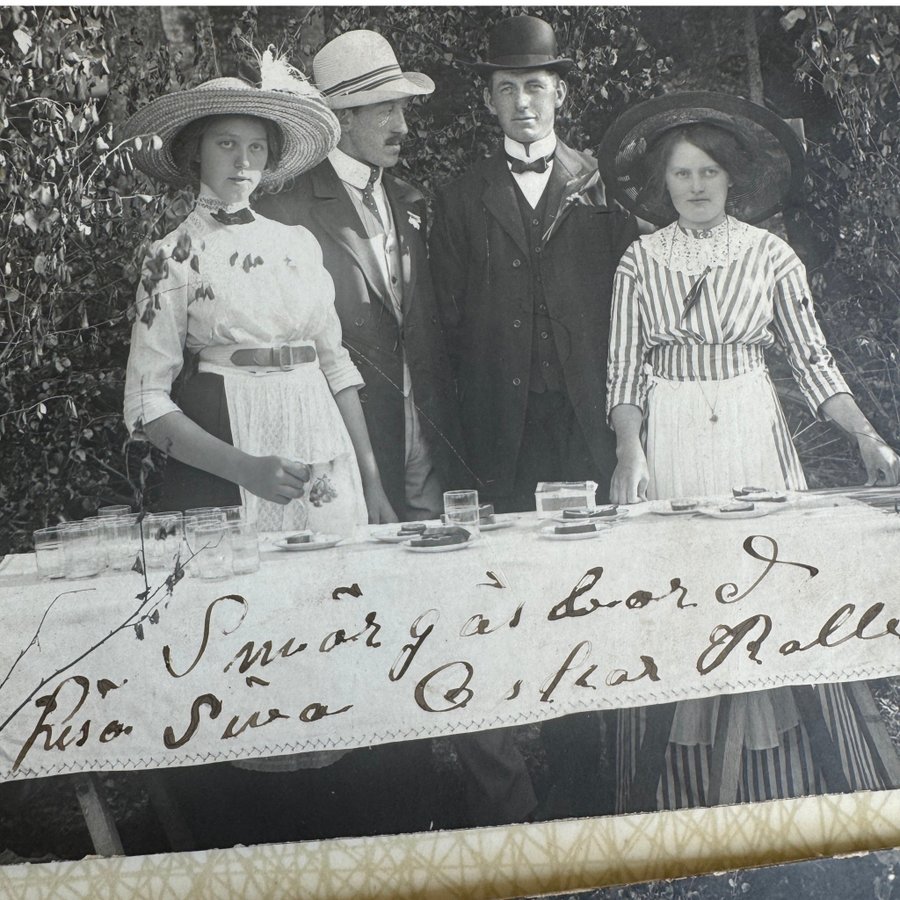 Smörgåsbord
Risö Siwa Oskar Ralle